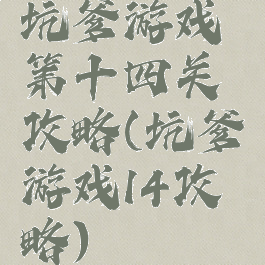 坑爹游戏
第十四关
攻略(坑爹
游戏14攻
略)